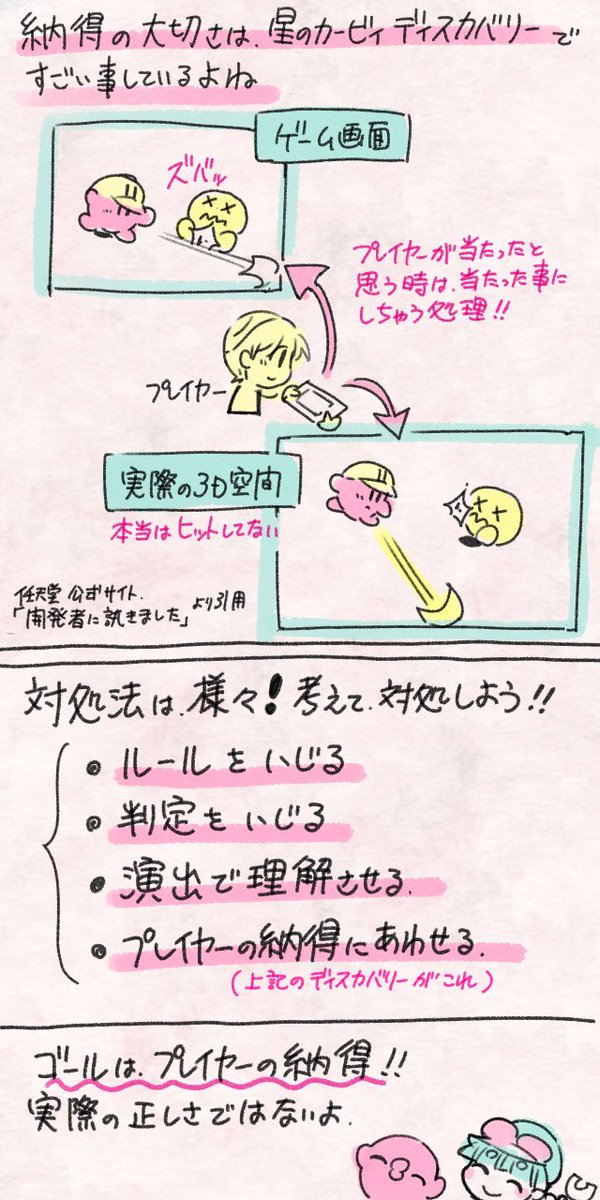 納得の大切さは、星のカービィ ディスカバリーで
すごい事しているよね
ゲーム画面
ズバッ
プレイヤーが当たったと
思う時は、当たった事に
しちゃう処理!!
プレイヤー
実際の3D空間
本当はヒットしてない
任天堂 公式サイト.
「開発者に訊きました」より引用
対処法は、様々!考えて、対処しよう!!
• ルールをいじる
• 判定をいじる
• 演出で理解させる.
• プレイヤーの納得にあわせる.
(上記のディスカバリーがこれ)
ゴールは、プレイヤーの納得!!
実際の正しさではないよ.